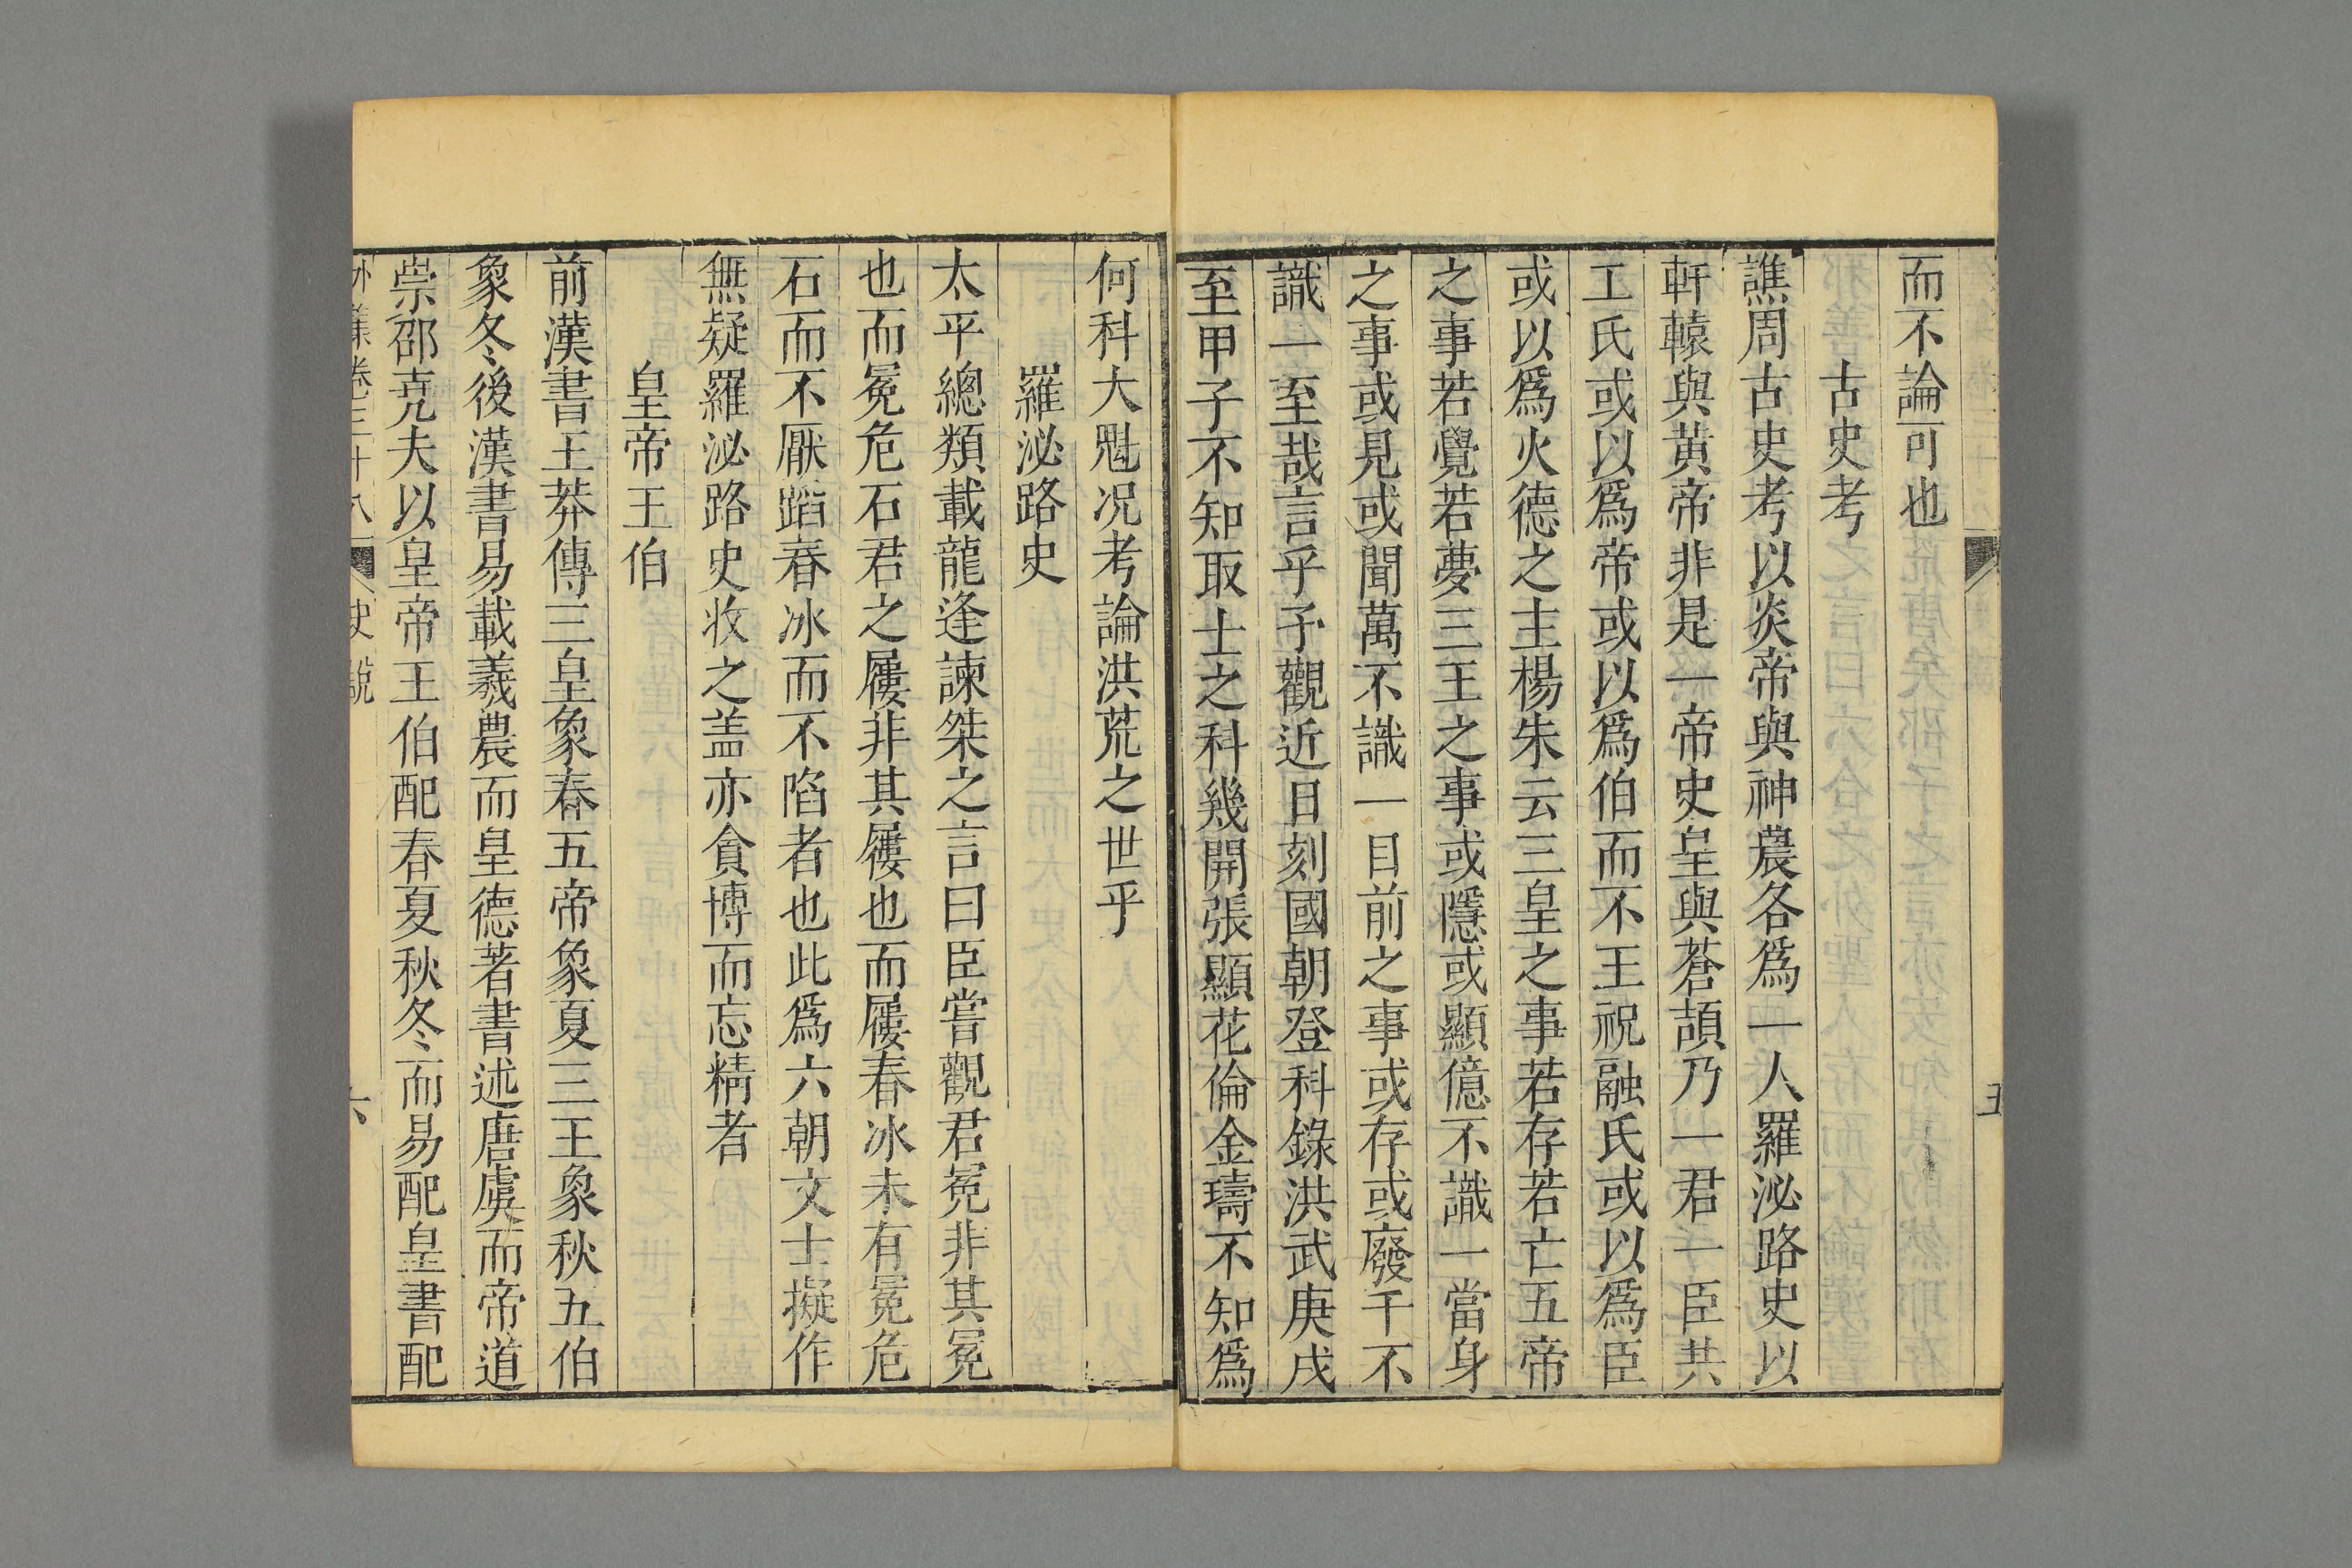 而不論可也
古史考
譙周古史考以炎帝與神農各爲一人羅泌路史以
軒轅與黃帝非是一帝史皇與蒼頡乃一君一臣共
工氏或以爲帝或以爲伯而不王祝融氏或以爲臣
或以爲火德之主楊朱云三皇之事若存若亡五帝
之事若覺若夢三王之事或隱或顯億不識一當身
之事或見或聞萬不識一目前之事或存或廢千不
識一至哉言乎予觀近日刻國朝登科錄洪武庚戌
至甲子不知取士之科幾開張顯花倫金璹不知爲
五
何科大魁况考論洪荒之世乎
羅泌路史
太平總類載龍逢諫桀之言曰臣嘗觀君冕非其冕
也而冕危石君之屨非其屨也而屨春冰未有冕危
石而不厭蹈春冰而不陷者也此爲六朝文士擬作
無疑羅泌路史收之盖亦貪博而忘精者
皇帝王伯
前漢書王莽傳三皇象春五帝象夏三王象秋五伯
象冬後漢書易載羲農而皇德著書述唐虞而帝道
崇邵堯夫以皇帝王伯配春夏秋冬而易配皇書配
外集卷三十八 史說 六